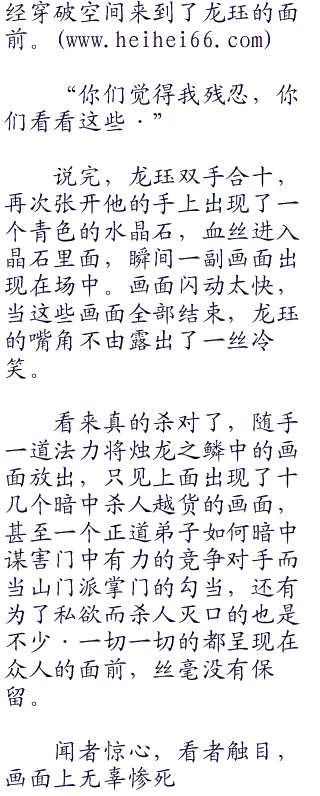 经穿破空间来到了龙珏的面
前。(www.heihei66.com)
“你们觉得我残忍，你
们看看这些·”
说完，龙珏双手合十，
再次张开他的手上出现了一
个青色的水晶石，血丝进入
晶石里面，瞬间一副画面出
现在场中。画面闪动太快，
当这些画面全部结束，龙珏
的嘴角不由露出了一丝冷
笑。
看来真的杀对了，随手
一道法力将烛龙之鳞中的画
面放出，只见上面出现了十
几个暗中杀人越货的画面，
甚至一个正道弟子如何暗中
谋害门中有力的竞争对手而
当山门派掌门的勾当，还有
为了私欲而杀人灭口的也是
不少·一切一切的都呈现在
众人的面前，丝毫没有保
留。
闻者惊心，看者触目，
画面上无辜惨死